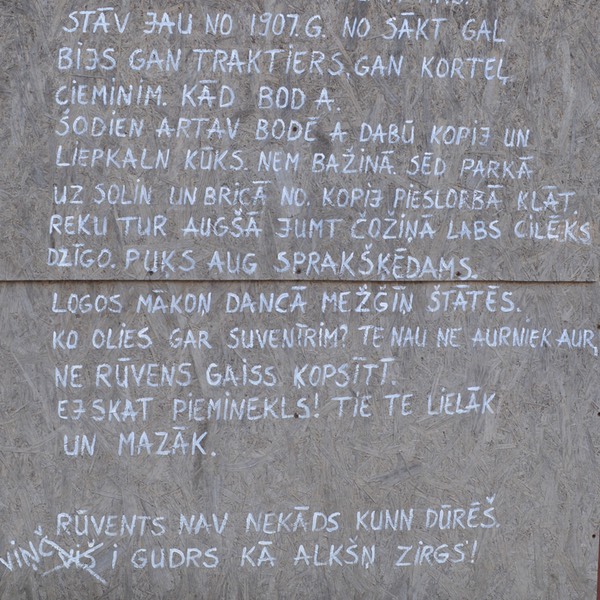 STĀV JAU NO 1907.G. NO SĀKT GAL
BIJS GAN TRAKTIERS, GAN KORTEĻ
CIEMINIM. KĀD BOD A.
ŠODIEN ARTAV BODĒ A DABŪ KOPIJ UN
LIEPKALN KŪKS. NEM BAŽIŅĀ. SĒD PARKĀ
UZ SOLIN UN BRICĀ NO. KOPIJ PIESLORBĀ KLĀT.
REKU TUR AUGŠĀ JUMT ČOŽIŅĀ LABS CILĒKS
DZĪGO. PUĶS AUG SPRAKŠĶĒDAMS.
LOGOS MĀKOŅ DANCĀ MEŽĢĪŅ ŠTĀTĒS.
KO OLIES GAR SUVENĪRIM? TE NAU NE AURNIEK AUR,
NE RŪVENS GAISS KOPSĪTĪ.
EJSKAT PIEMINEKLS! TIE TE LIELĀK
UN MAZĀK.
RŪVENTS NAV NEKĀDS KUNN DŪRĒŠ.
VIŅČ VIŠ I GUDRS KĀ ALKŠŅ ZIRGS!